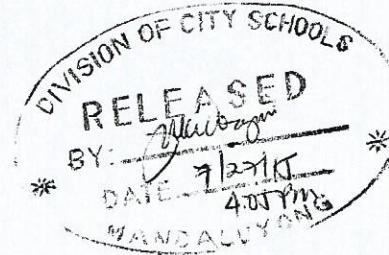 DIVISION OF CITY SCHOOLS
RELEASED
BY:
DATE 7/27/15
4:05 PM
MANDALUYONG